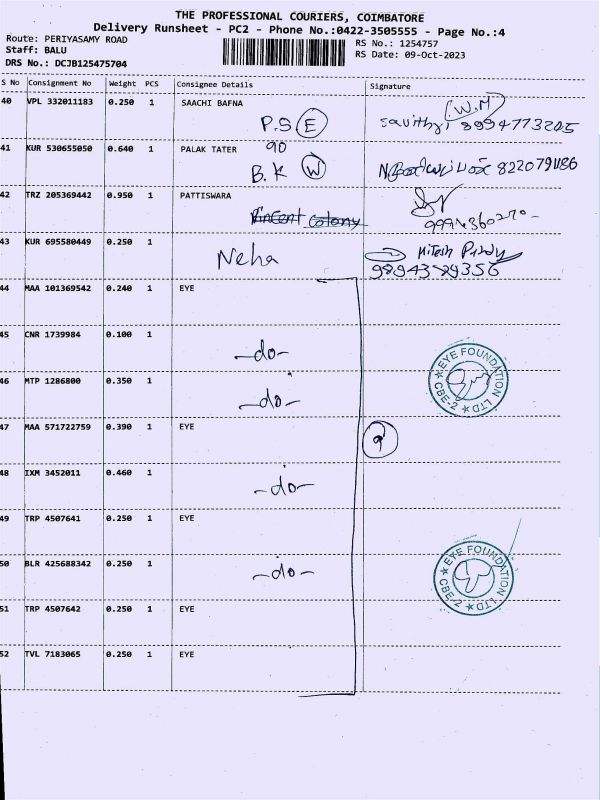 THE PROFESSIONAL COURIERS, COIMBATORE
Delivery Runsheet - PC2 - Phone No.:0422-3505555 - Page No.:4
Route: PERIYASAMY ROAD
Staff: BALU
DRS No.: DCJB125475704
RS No.: 1254757
RS Date: 09-Oct-2023
S No Consignment No Weight PCS Consignee Details Signature
40 VPL 332011183 0.250 1 SAACHI BAFNA
(W.M)
P.S (E)
41 KUR 530655050 0.640 1 PALAK TATER
90
B.K (W)
42 TRZ 205369442 0.950 1 PATTISWARA
Vincent Colony
43 KUR 695580449 0.250 1
Neha
44 MAA 101369542 0.240 1 EYE
45 CNR 1739984 0.100 1
-do-
46 MTP 1286800 0.350 1
-do-
EYE FOUNDATION LTD
CBE-2
47 MAA 571722759 0.390 1 EYE
48 IXM 3452011 0.460 1
-do-
49 TRP 4507641 0.250 1 EYE
50 BLR 425688342 0.250 1
-do-
EYE FOUNDATION LTD
CBE-2
51 TRP 4507642 0.250 1 EYE
52 TVL 7183065 0.250 1 EYE